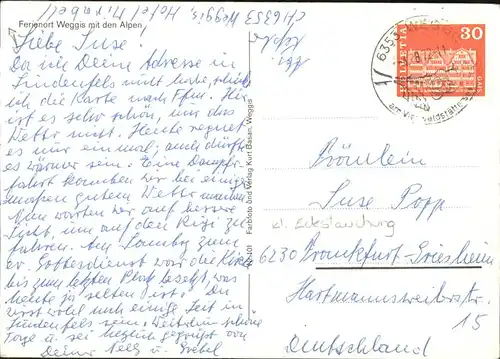 Ferienort Weggis mit den Alpen
CH 6353 Weggis, Hotel
Liebe Suse!
Da ich Deine Adresse in
Lindenfels nicht habe, schicke
ich die Karte nach Ffm. Hier
ist es sehr schön, nur das
Wetter nicht. Heute regnet
es nur einmal, auch dürfte
es wärmer sein. Eine Dampfer-
fahrt konnten wir bei einiger-
maßen gutem Wetter machen.
Nun warten wir auf bessere
Sicht, um auf den Rigi zu
fahren. Am Sonntag zum
ev. Gottesdienst war die Kirche
bis zum letzten Platz besetzt, was
heute ja selten ist. Du
wirst wohl noch einige Zeit in
Lindenfels sein. Weiterhin schöne
Tage u. sei herzlich gegrüßt von
Deiner u.
Farbfoto und Verlag Kurt Basan, Weggis
HELVETIA
30
6353 WEGGIS
am Vierwaldstättersee
Fräulein
Suse Popp
kl. Eckstauchung
6230 Frankfurt-Griesheim
Hartmannsweilerstr.
15
Deutschland